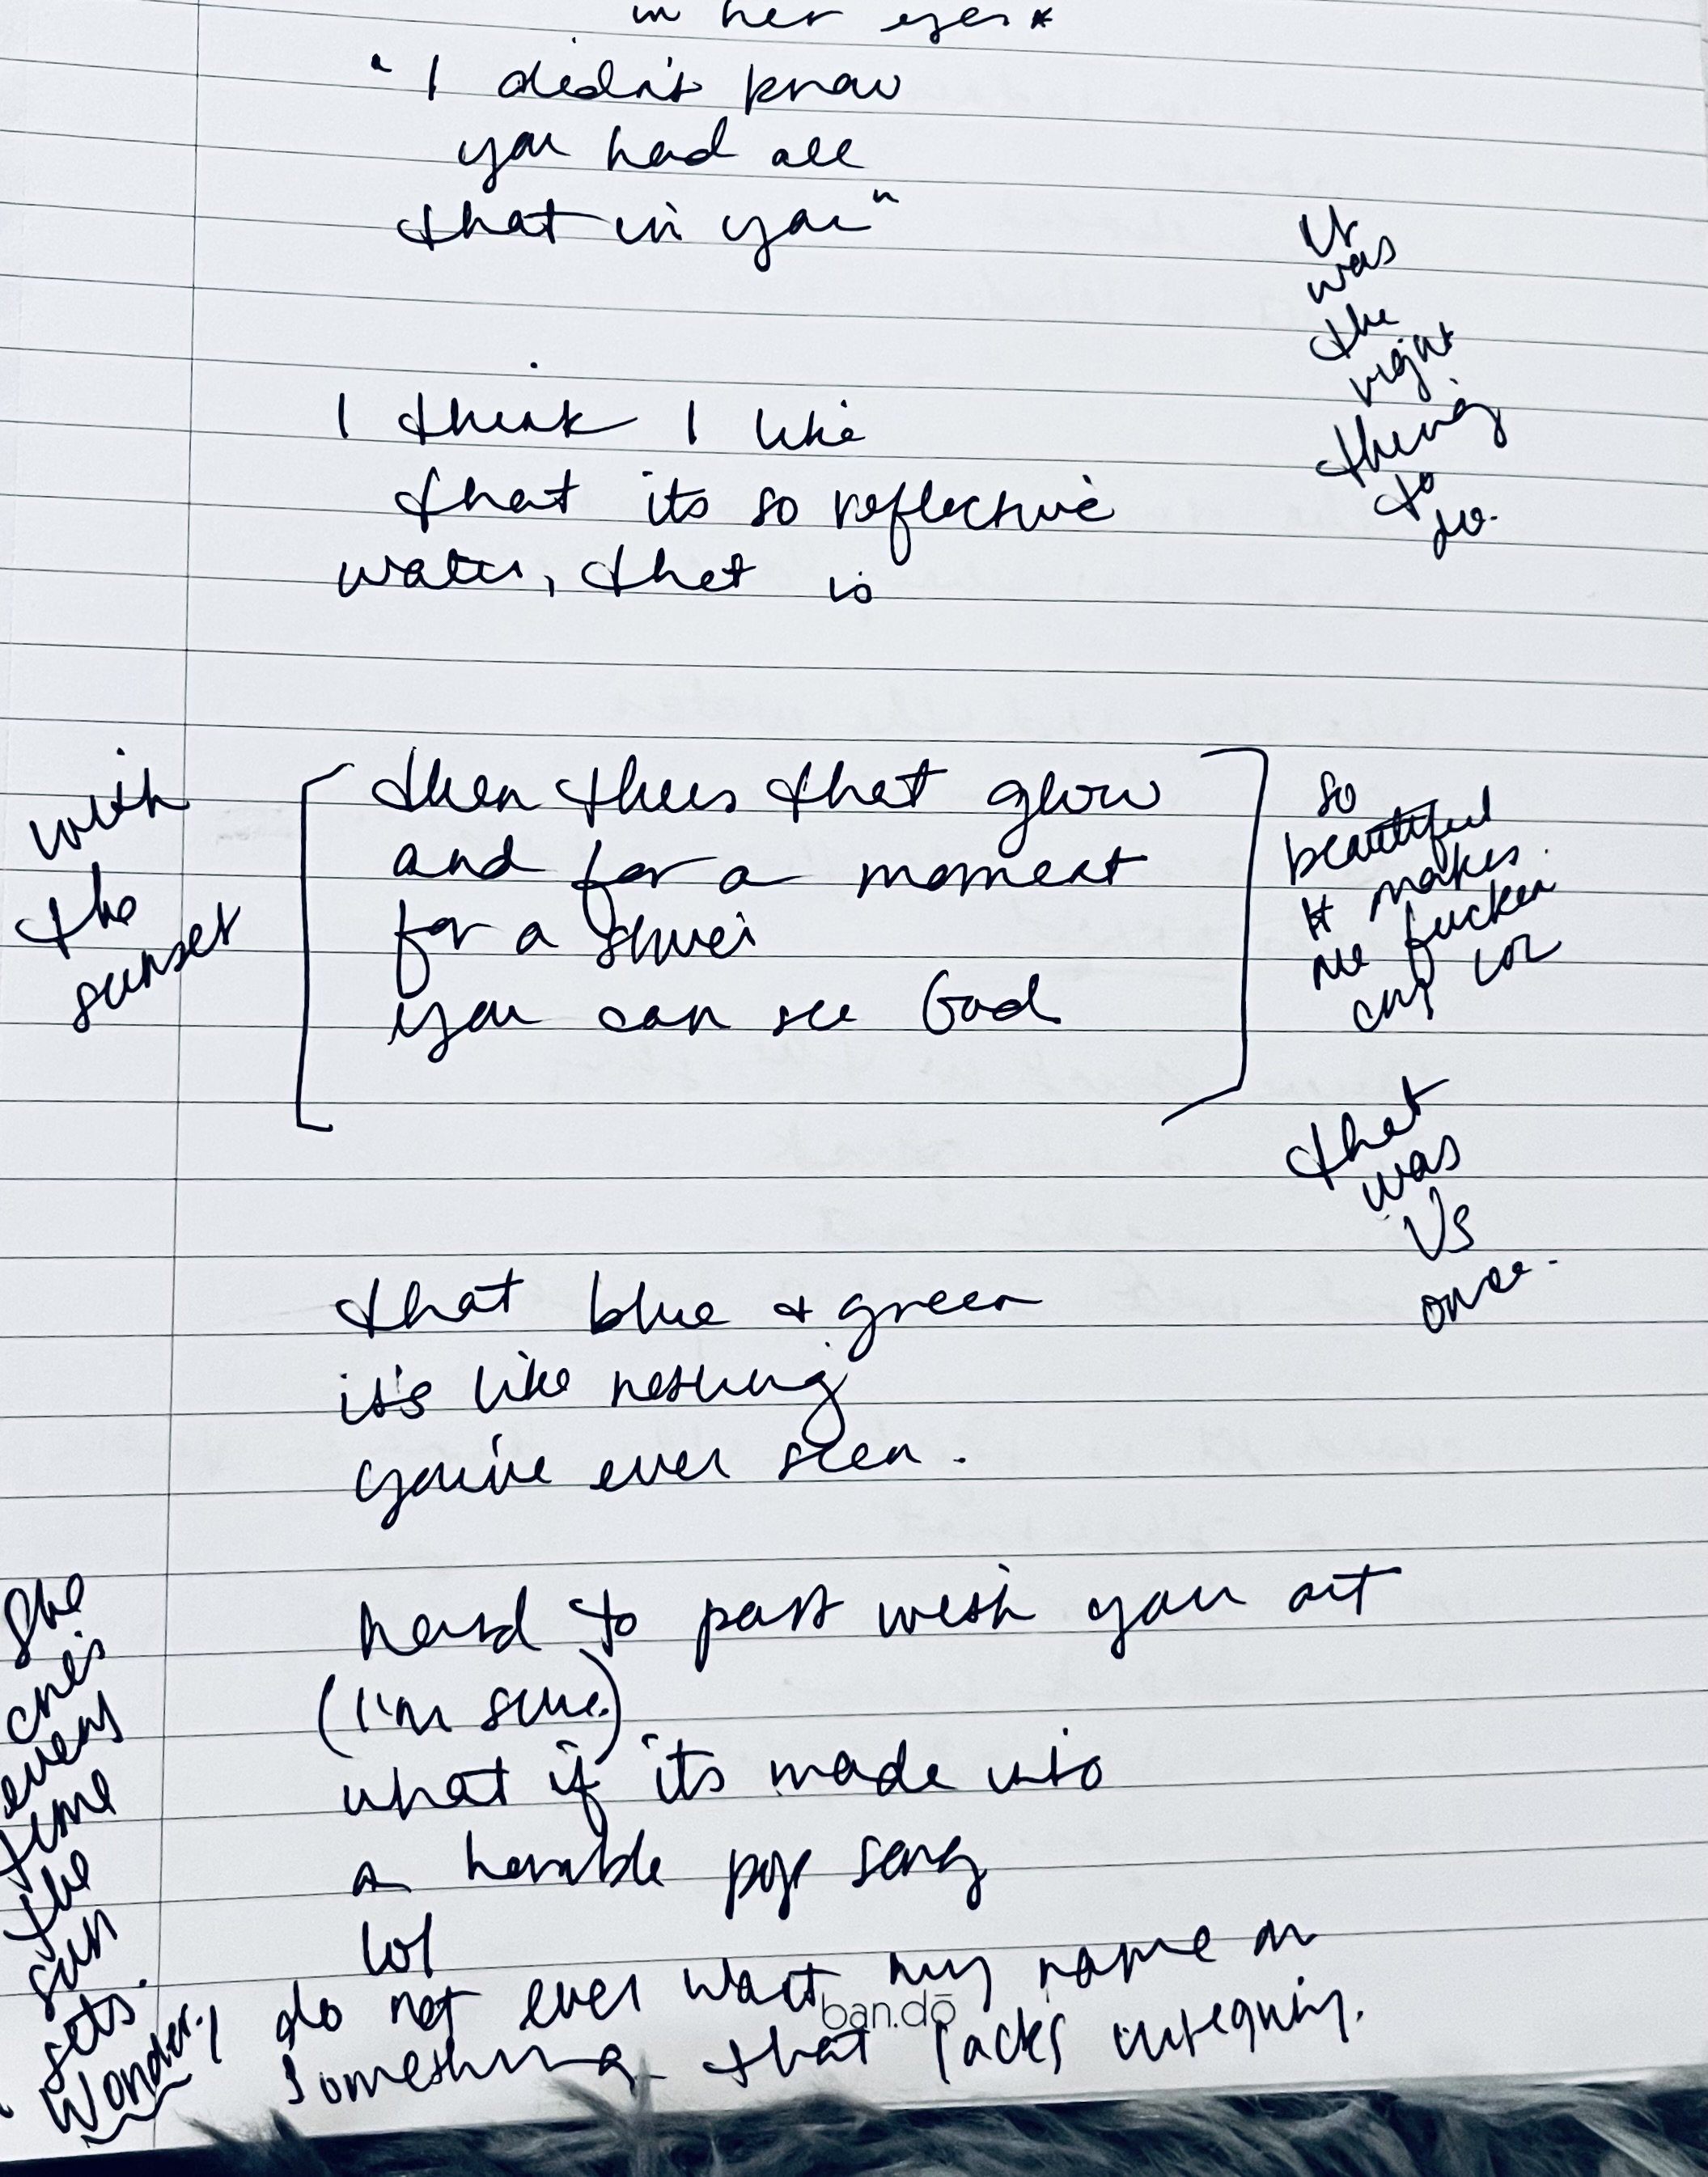 in her eyes *
"I didn't know
you had all
that in you"
It
was
the
right
thing
to
do.
I think I like
that its so reflective
water, that is
with
the
sunset
then theres that glow
and for a moment
for a
you can see God
so
beautiful
it makes
me fucken
cry LOL
that
was
US
once.
that blue + green
it's like nothing
you've ever seen.
hard to part with your art
(I'm sure)
what if its made into
a horrible pop song
lol
She
cries
every
time
the
sun
sets.
Wonder.
I do not ever want my name on
something that lacks integrity.
ban.dō